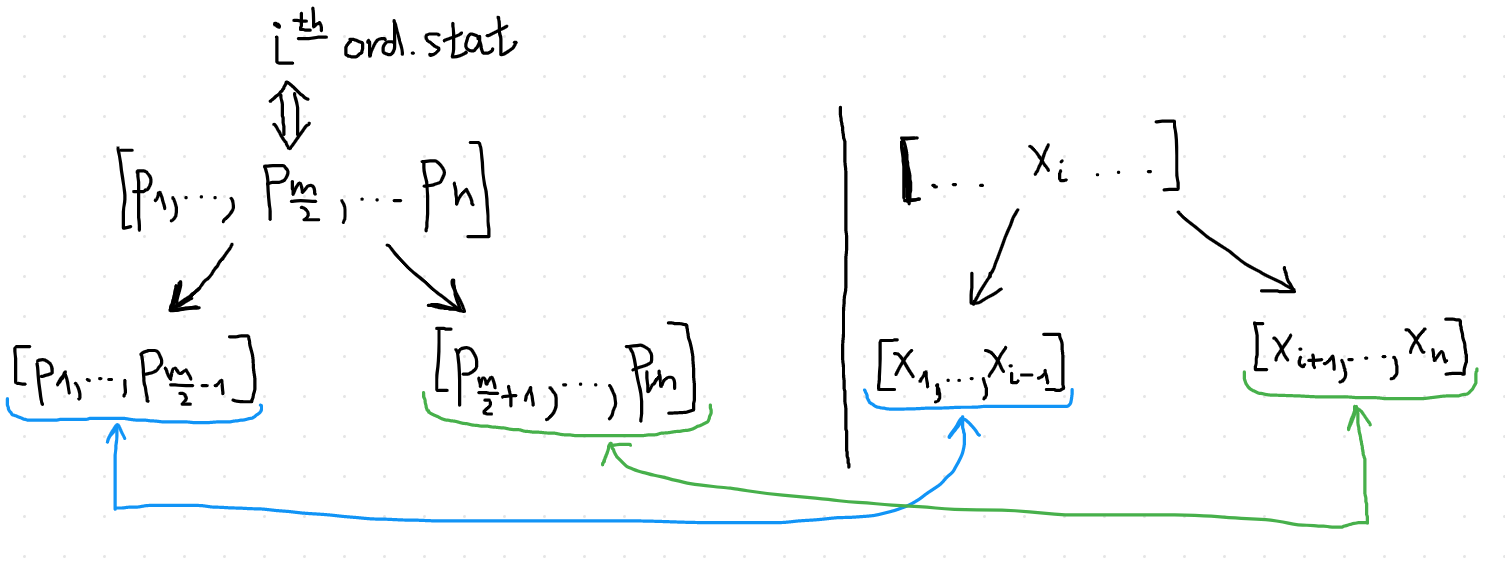 i^th ord.stat
[p_1,..., p_{m/2}, ... p_n]
[... x_i ...]
[p_1,..., p_{m/2-1}]
[p_{m/2+1},..., p_m]
[x_1,...,x_{i-1}]
[x_{i+1},...,x_n]